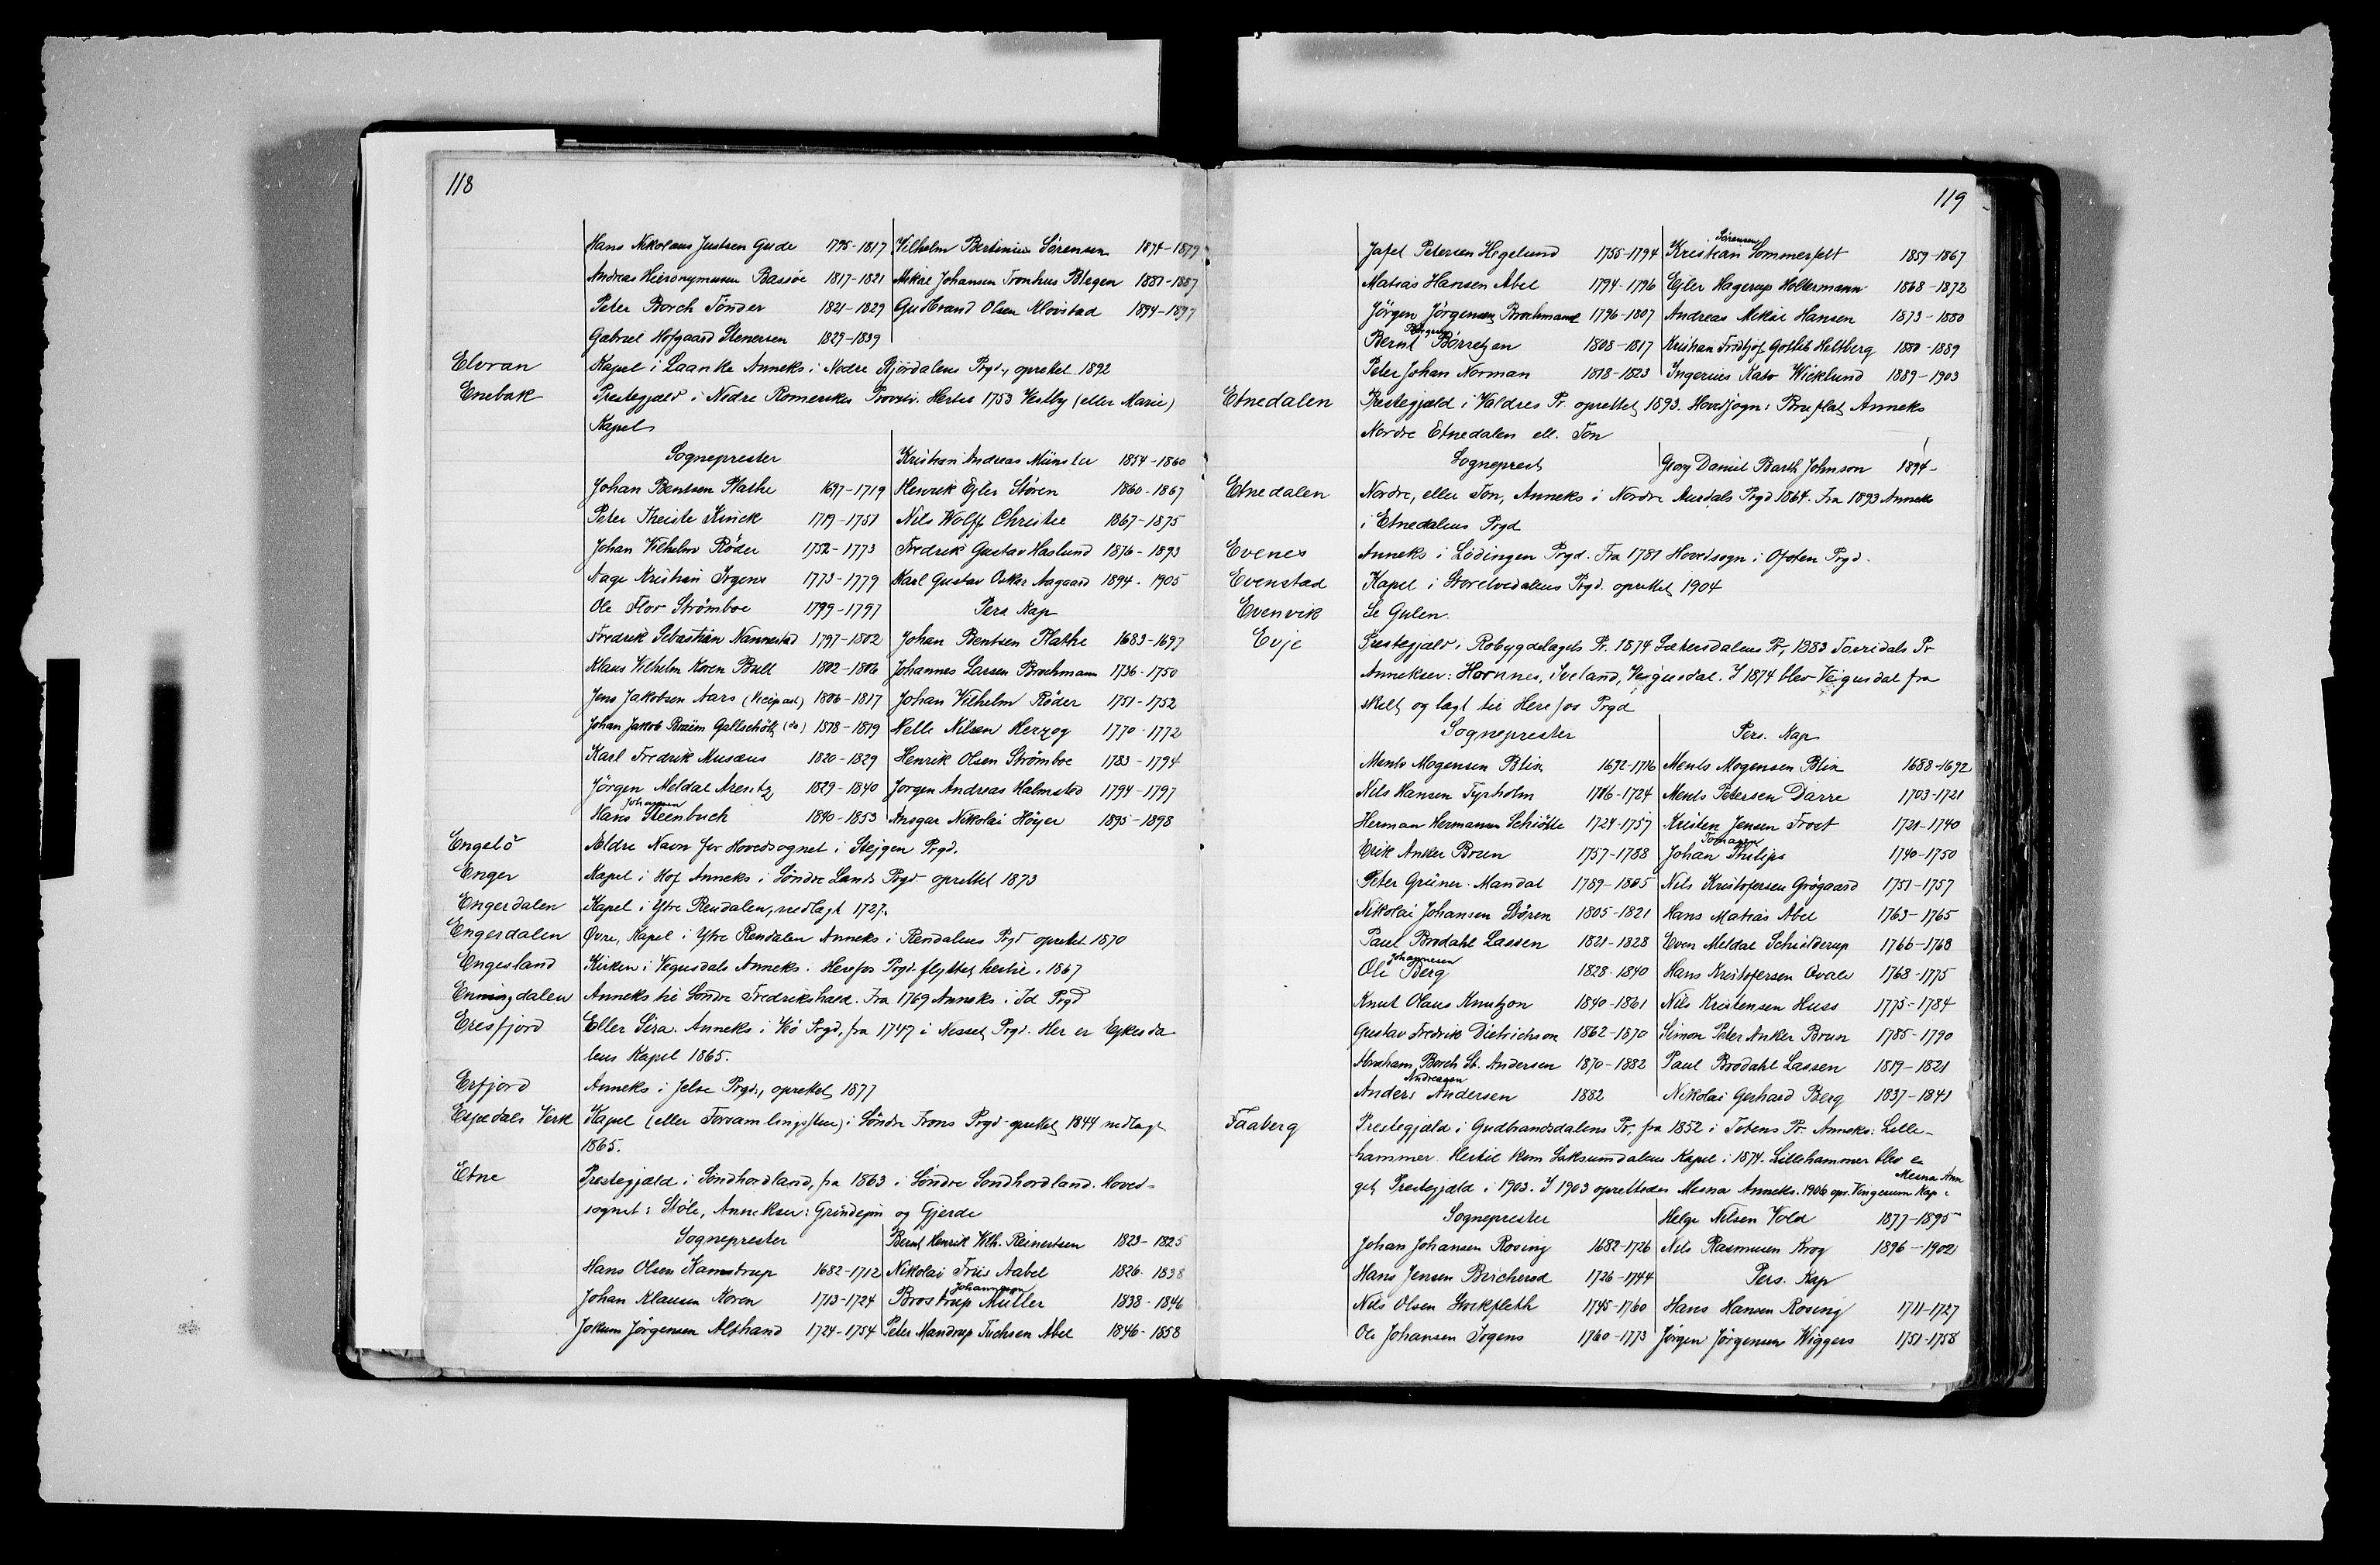 118
Hans Nikolaus Justsen Gude 1795-1817
Andreas Hieronymusen Bassöe 1817-1821
Peter Borch Tönder 1821-1829
Gabriel Hofgaard Stenersen 1829-1839
Vilhelm Bertinius Sörensen 1874-1879
Mikal Johansen Tronhus Blegen 1881-1887
Gudbrand Olsen Alovstad 1894-1897
Elvran Kapel i Laanke Anneks i Nedre Stjördalens Prgd., oprettet 1892
Enebak Prestegjæld i Nedre Romerikes Provsti. Hertil 1753 Vestby (eller Marie)
Kapel
Sogneprester
Johan Bentsen Plathe 1697-1719
Peter Theiste Kinck 1719-1751
Johan Vilhelm Röder 1752-1773
Aage Kristian Irgens 1773-1779
Ole Flor Strömboe 1799-1797
Fredrik Sebastian Nannestad 1797-1802
Klaus Vilhelm Koren Bull 1802-1806
Jens Jakobsen Aars (Vicepast) 1806-1817
Johan Jakob Braëm Gallschött (do) 1818-1819
Karl Fredrik Musæus 1820-1829
Jörgen Meldal Arentz 1829-1840
Hans Johansen Steenbuch 1840-1853
Kristian Andreas Münster 1854-1860
Henrik Ejler Stören 1860-1867
Nils Wolff Christie 1867-1875
Fredrik Gustav Haslund 1876-1893
Karl Gustav Oskar Aagaard 1894-1905
Pers Kap
Johan Bentsen Plathe 1683-1697
Johannes Larsen Brochmann 1736-1750
Johan Vilhelm Röder 1751-1752
Helle Nilsen Herzog 1770-1772
Henrik Olsen Strömboe 1783-1794
Jörgen Andreas Halmsted 1794-1797
Ansgar Nikolai Höyer 1895-1898
Engelö Ældre Navn for Hovedsognet i Stejgen Prgd.
Enger Kapel i Hof Anneks i Söndre Lands Prgd. oprettet 1873
Engerdalen Kapel i Ytre Rendalen, nedlagt 1727.
Engerdalen Øvre, Kapel i Ytre Rendalen Anneks i Rendalens Prgd oprettet 1870
Engesland Kirken i Vegusdals Anneks i Herefos Prgd. flyttet hertil i 1867
Enningdalen Anneks til Söndre Fredrikshald. Fra 1769 Anneks i Id Prgd
Eresfjord Eller Sira. Anneks i Vö Prgd, fra 1747 i Nesset Prgd. Her er Ejkesda
lens Kapel 1865.
Erfjord Anneks i Jelse Prgd., oprettet 1877
Espedals Verk Kapel (eller Forsamlingsstue) i Söndre Frons Prgd oprettet 1844 nedlagt
1865.
Etne Prestegjæld i Söndhordland, fra 1863 i Söndre Söndhordland. Hoved-
sognet: Støle, Annekser: Grindejm og Gjerde
Sogneprester
Hans Olsen Kamstrup 1682-1712
Johan Klausen Koren 1713-1724
Jokum Jörgensen Althand 1724-1754
Bernt Henrik Vilh. Reinertsen 1823-1825
Nikolai Friis Aabel 1826-1838
Brostrup Johannesen Müller 1838-1846
Peter Mandrup Tuchsen Abel 1846-1858
119
Jafet Petersen Hegelund 1755-1794
Matias Hansen Abel 1794-1796
Jörgen Jörgensen Brochmand 1796-1807
Bernt Börretzen 1808-1817
Peter Johan Norman 1818-1823
Kristian Sörensen Sommerfelt 1859-1867
Ejler Hagerup Holtermann 1868-1872
Andreas Mikal Hansen 1873-1880
Kristian Fridtjof Gotlib Heltberg 1880-1889
Ingerius Kato Wicklund 1889-1903
Etnedalen Prestegjæld i Valdres Pr. oprettet 1893. Hovedsogn: Bruflat, Anneks
Nordre Etnedalen ell. Ton
Sogneprest Georg Daniel Barth Johnson 1894-
Etnedalen Nordre, eller Ton, Anneks i Nordre Aurdals Prgd 1864. Fra 1893 Anneks
i Etnedalens Prgd
Evenes Anneks i Lödingen Prgd. Fra 1781 Hovedsogn i Ofoten Prgd.
Evenstad Kapel i Storelvedalens Prgd. oprettet 1904
Evenvik Se Gulen.
Evje Prestegjæld i Robygdelagets Pr. 1874 Sætersdalens Pr, 1883 Torridals Pr
Annekser: Hornnes, Iveland, Vegusdal. I 1874 blev Vegusdal fra
skilt og lagt til Herefos Prgd
Sogneprester
Ments Mogensen Blix 1692-1716
Nils Hansen Tyrholm 1716-1724
Herman Hermansen Schiötte 1724-1757
Erik Anker Brun 1757-1788
Peter Grüner Mandal 1789-1805
Nikolai Johansen Stören 1805-1821
Paul Brodahl Lassen 1821-1828
Ole Johannesen Berg 1828-1840
Knut Olaus Knutzon 1840-1861
Gustav Fredrik Dietrichson 1862-1870
Abraham Borch St. Andersen 1870-1882
Anders Andreasen Andersen 1882
Pers. Kap
Ments Mogensen Blix 1688-1692
Ments Petersen Darre 1703-1721
Kristen Jensen Frost 1721-1740
Johan Philips 1740-1750
Nils Kristofersen Grögaard 1751-1757
Hans Matias Abel 1763-1765
Even Meldal Schielderup 1766-1768
Hans Kristofersen Qvale 1768-1775
Nils Kristensen Huss 1775-1784
Simon Peter Anker Brun 1785-1790
Paul Brodahl Lassen 1819-1821
Nikolai Gerhard Berg 1837-1841
Faaberg Prestegjæld i Gudbrandsdalens Pr, fra 1852 i Totens Pr. Anneks: Lille-
hammer. Hertil kom Saksumdalens Kapel i 1874. Lillehammer blev e
get Prestegjæld i 1903. I 1903 oprettedes Mesna Anneks. 1906 opr. Vingerum Kap i
Mesna Ann
Sogneprester
Johan Johansen Rosing 1682-1726
Hans Jensen Bircherod 1726-1744
Nils Olsen Stockfleth 1745-1760
Ole Johansen Irgens 1760-1773
Helge Nilsen Vold 1877-1895
Nils Rasmusen Krog 1896-1902
Pers. Kap
Hans Hansen Rosing 1711-1727
Jörgen Jörgensen Wiggers 1751-1758